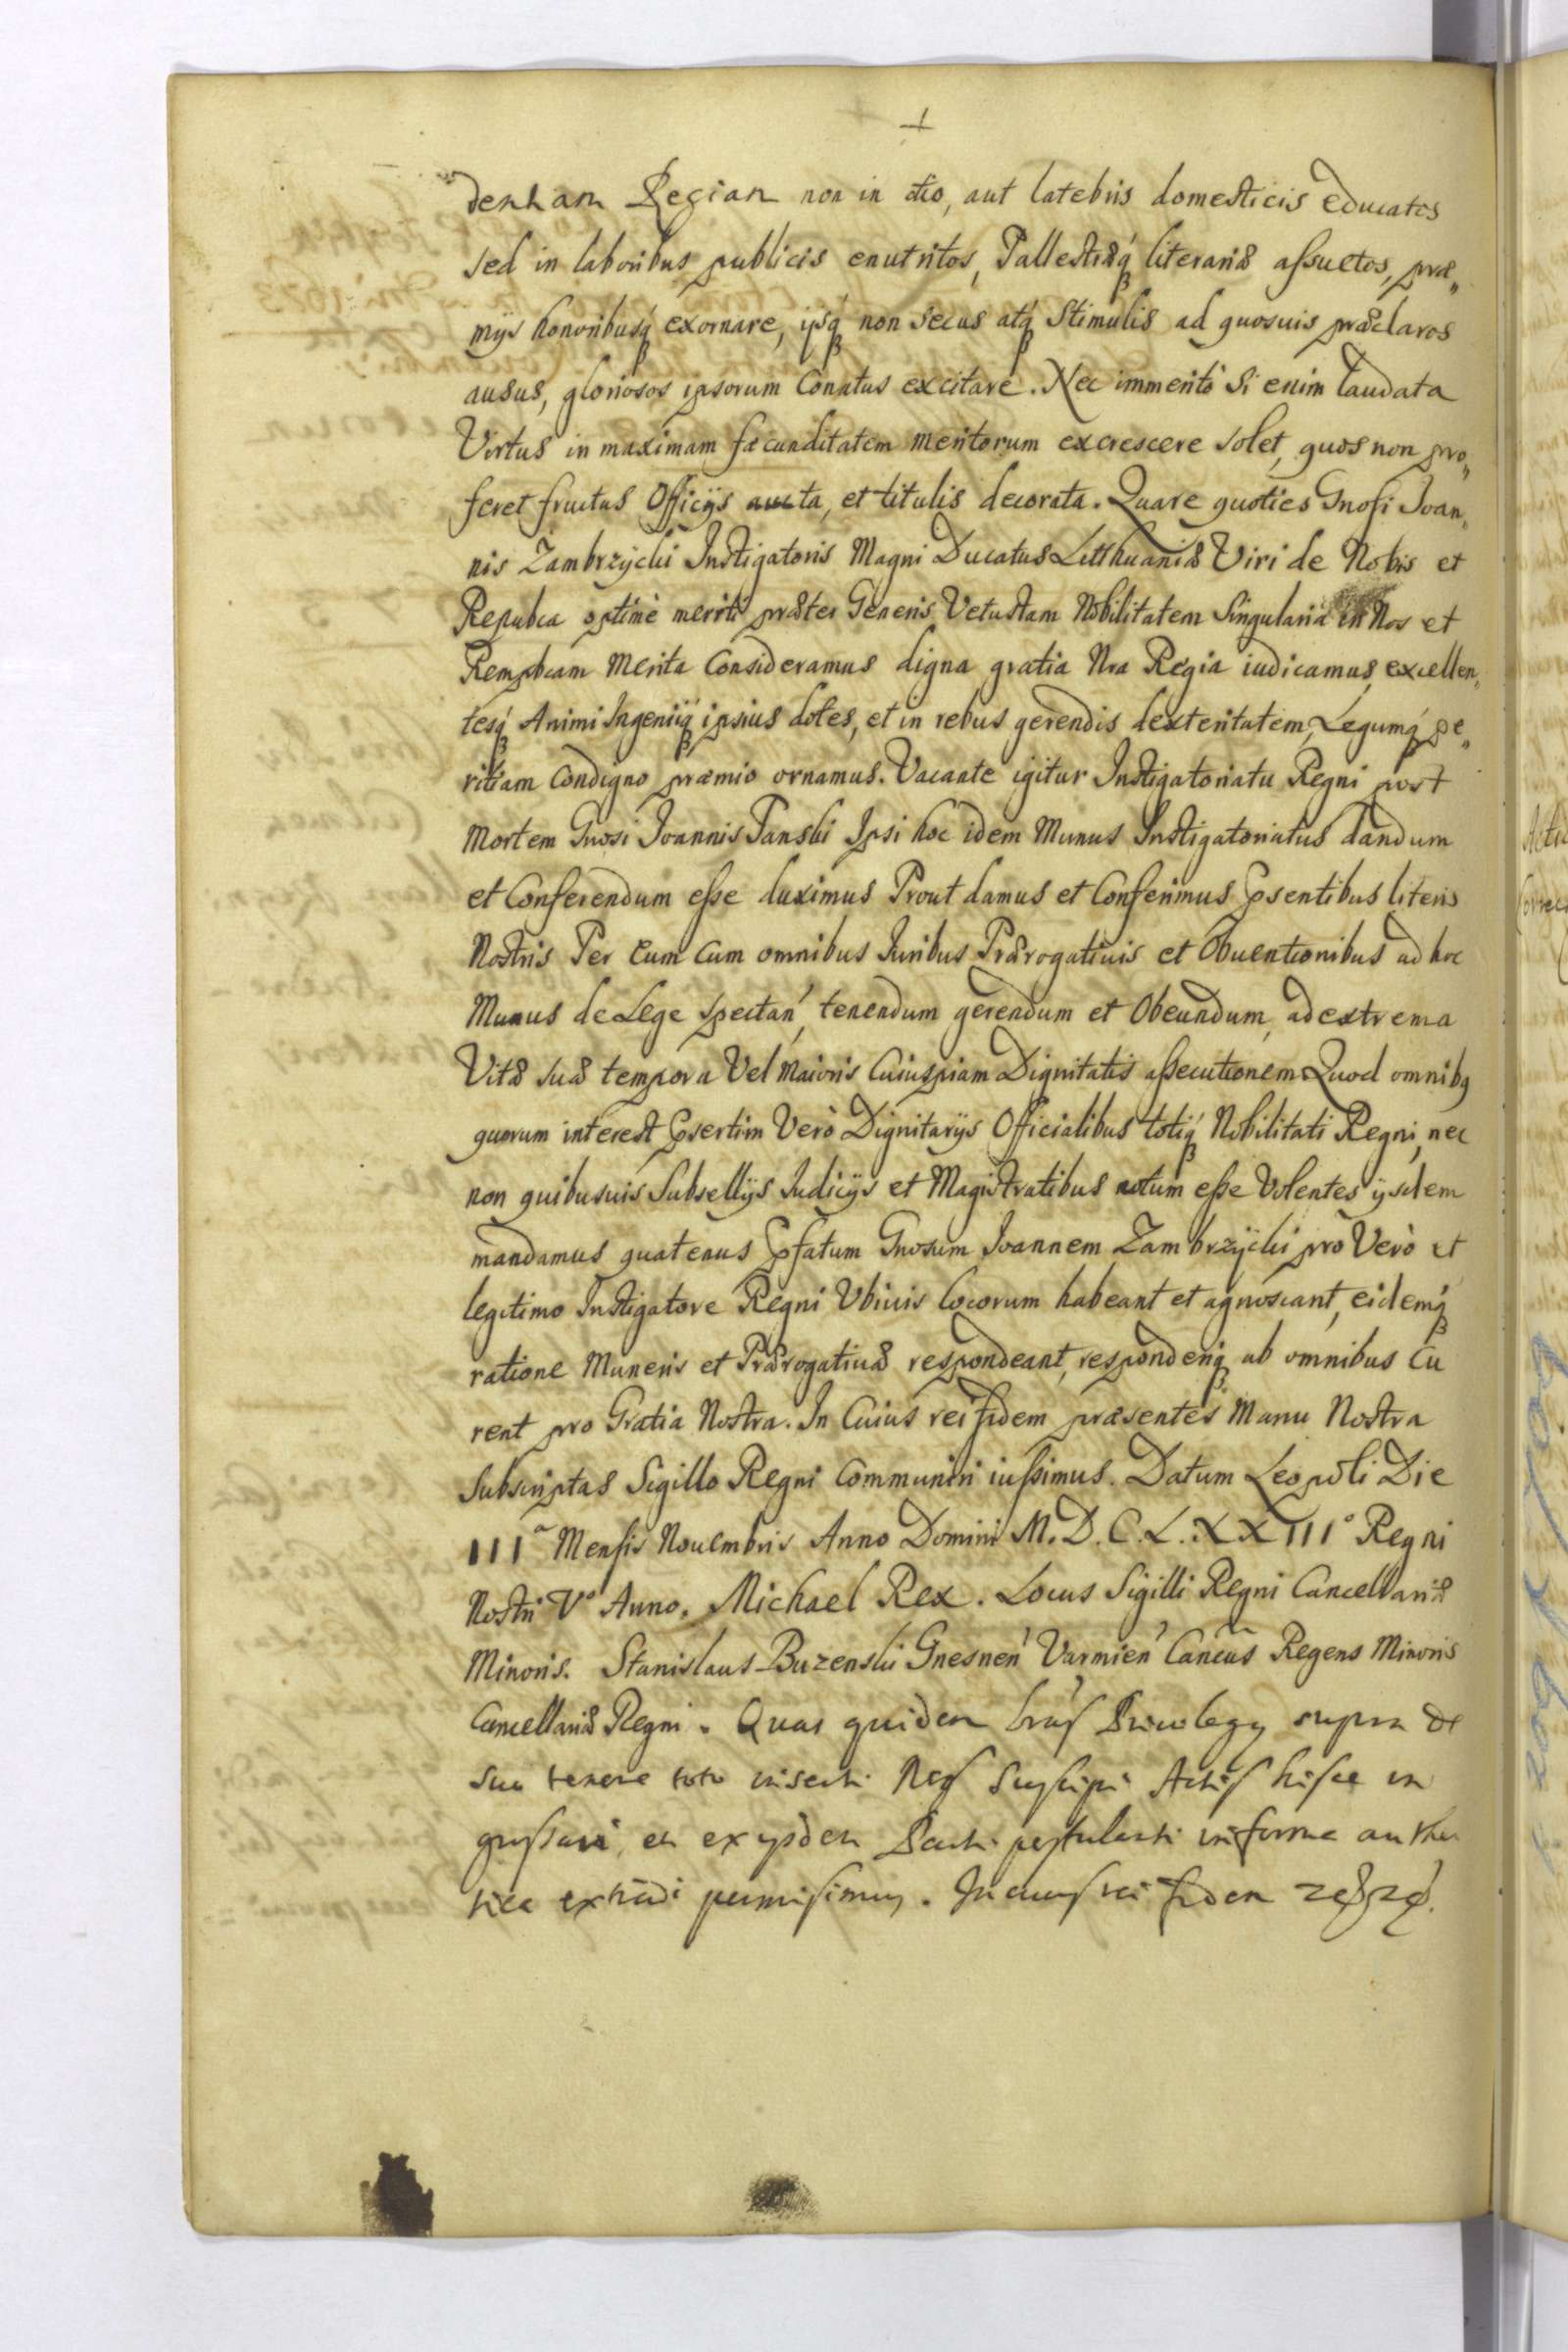 dentiam Regiam non in otio, aut latebris domesticis educatos
sed in laboribus publicis enutritos, Pallestræq́ literariæ assuetos, præ„
mijs honoribusq́ exornare, ijsq́ non secus atq́ Stimulis ad quosuis præclaros
ausus, gloriosos ipsorum Conatus excitare. Nec immeritò Si enim laudata
Virtus in maximam fæcunditatem meritorum excrescere solet, quos non pro„
feret fructus Officijs aucta, et titulis decorata. Quare quoties Gnosi Joan„
nis Zambrzycki Instigatoris Magni Ducatus Litthuaniæ Viri de Nobis et
Repubca optimè meriti præter Generis Vetustam Nobilitatem Singularia in Nos et
Rempbcam Merita Consideramus digna gratia Nra Regia iudicamus, excellen„
tesq́ Animi Ingeniiq́ ipsius dotes, et in rebus gerendis dexteritatem, Legumq́ pe„
ritiam Condigno præmio ornamus. Vacante igitur Instigatoriatu Regni post
Mortem Gnosi Joannis Panski Ipsi hoc idem Munus Instigatoriatus dandum
et Conferendum esse duximus Prout damus et Conferimus Psentibus literis
Nostris Per Eum Cum omnibus Juribus Prærogatiuis et Obuentionibus ad hoc
Munus de Lege spectań, tenendum gerendum et Obeundum, ad extrema
Vitæ suæ tempora Vel Maioris Cuiuspiam Dignitatis assecutionem Quod omnibq
quorum interest Psertim Verò Dignitarijs Officialibus totiq́ Nobilitati Regni, nec
non quibusuis Subsellijs Judicijs et Magistratibus notum esse Volentes ijsdem
mandamus quatenus Pfatum Gnosum Joannem Zambrzycki pro Verò et
legitimo Instigatore Regni Vbiuis locorum habeant et agnoscant, eidemq́
ratione Muneris et Prærogatiuæ respondeant, responderiq́ ab omnibus Cu
rent pro Gratia Nostra. In Cuius rei fidem præsentes Manu Nostra
Subscriptas Sigillo Regni Communiri iussimus. Datum Leopoli Die
IIIa Mensis Nouembris Anno Domini M.D.C.L.XXIII° Regni
Nostri V° Anno. Michael Rex. Locus Sigilli Regni Cancellariæ
Minoris. Stanislaus Buzenski Gnesneń Varmień Cancus Regens Minoris
Cancellariæ Regni. Quas quidem lras Priuilegij supra de
suo tenore toto inserti Nos Suscipi Actis hisce in
grossari, et ex ijsdem Parti postulanti in forma authen
tica extradi permisimus. In cuius rei fidem